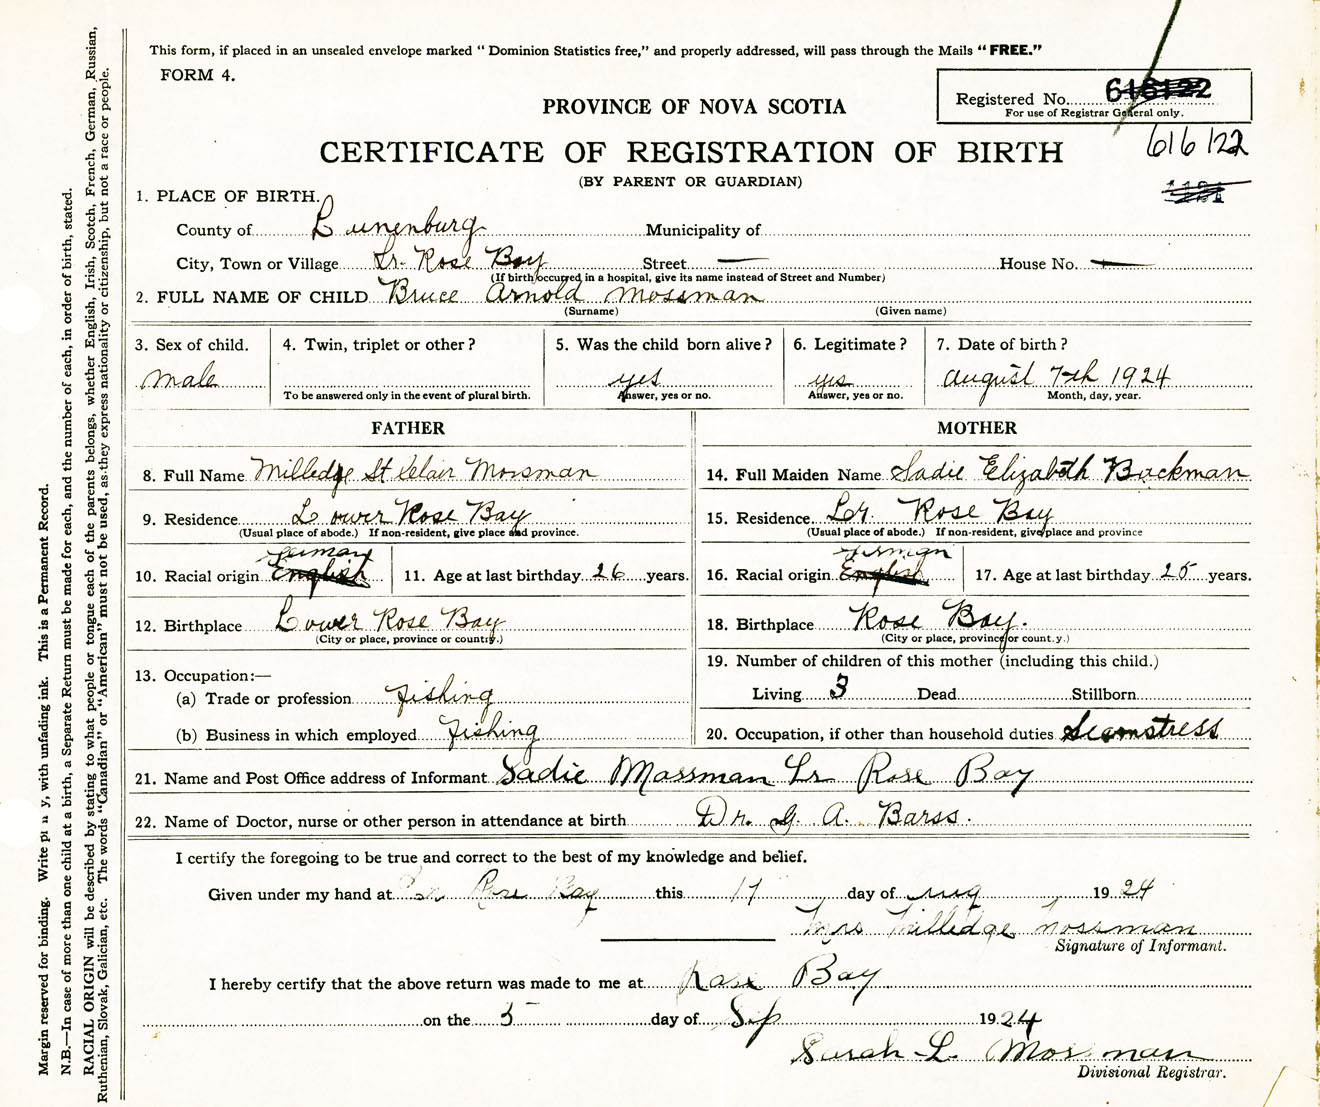 This form, if placed in an unsealed envelope marked "Dominion Statistics free," and properly addressed, will pass through the Mails "FREE."
FORM 4.
Registered No. 616122
For use of Registrar General only.
PROVINCE OF NOVA SCOTIA
616122
CERTIFICATE OF REGISTRATION OF BIRTH
(BY PARENT OR GUARDIAN)
1. PLACE OF BIRTH.
County of Lunenburg Municipality of
City, Town or Village Lr. Rose Bay Street — House No. —
(If birth occurred in a hospital, give its name instead of Street and Number)
2. FULL NAME OF CHILD Bruce Arnold Mossman
(Surname) (Given name)
3. Sex of child. 4. Twin, triplet or other? 5. Was the child born alive? 6. Legitimate? 7. Date of birth?
male yes yes august 7th 1924
To be answered only in the event of plural birth. Answer, yes or no. Answer, yes or no. Month, day, year.
FATHER MOTHER
8. Full Name Milledge St Clair Mossman 14. Full Maiden Name Sadie Elizabeth Backman
9. Residence Lower Rose Bay 15. Residence. Lr. Rose Bay
(Usual place of abode.) If non-resident, give place and province. (Usual place of abode.) If non-resident, give place and province
German German
10. Racial origin English 11. Age at last birthday 26 years. 16. Racial origin English 17. Age at last birthday 25 years.
12. Birthplace Lower Rose Bay 18. Birthplace Rose Bay.
(City or place, province or country.) (City or place, province or count.y.)
13. Occupation:— 19. Number of children of this mother (including this child.)
(a) Trade or profession fishing Living 3 Dead Stillborn
(b) Business in which employed fishing 20. Occupation, if other than household duties Seamstress
21. Name and Post Office address of Informant Sadie Mossman Lr Rose Bay
22. Name of Doctor, nurse or other person in attendance at birth Dr. G. A. Barss.
I certify the foregoing to be true and correct to the best of my knowledge and belief.
Given under my hand at Lr Rose Bay this 17 day of Aug 1924
Mrs Milledge Mossman
Signature of Informant.
I hereby certify that the above return was made to me at Rose Bay
on the 5 day of Sep 1924
Sarah L. Mossman
Divisional Registrar.
Margin reserved for binding. Write pl n y, with unfading ink. This is a Permanent Record.
N.B.—In case of more than one child at a birth, a Separate Return must be made for each, and the number of each, in order of birth, stated.
RACIAL ORIGIN will be described by stating to what people or tongue each of the parents belongs, whether English, Irish, Scotch, French, German, Russian,
Ruthenian, Slovak, Galician, etc. The words "Canadian" or "American" must not be used, as they express nationality or citizenship, but not a race or people.